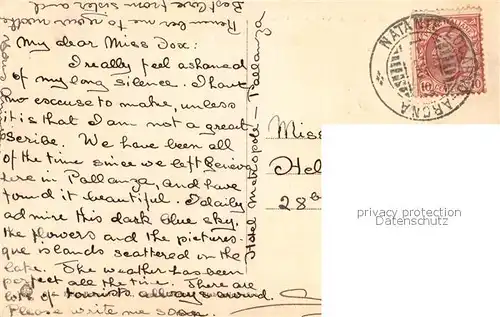 My dear Miss Dox:
I really feel ashamed
of my long silence. I have
no excuse to make, unless
it is that I am not a great
scribe. We have been all
of the time since we left Geneva
here in Pallanza, and have
found it beautiful. I daily
admire this dark blue sky,
the flowers and the pictures-
que islands scattered on the
lake. The weather has been
perfect all the time. There are
lots of tourists always around.
Please write me soon.
Remember me to your mother
Best love from sister and
Hotel Metropole - Pallanza
NATANTE LOCARNO ARONA
10
Miss
Hel
28
privacy protection